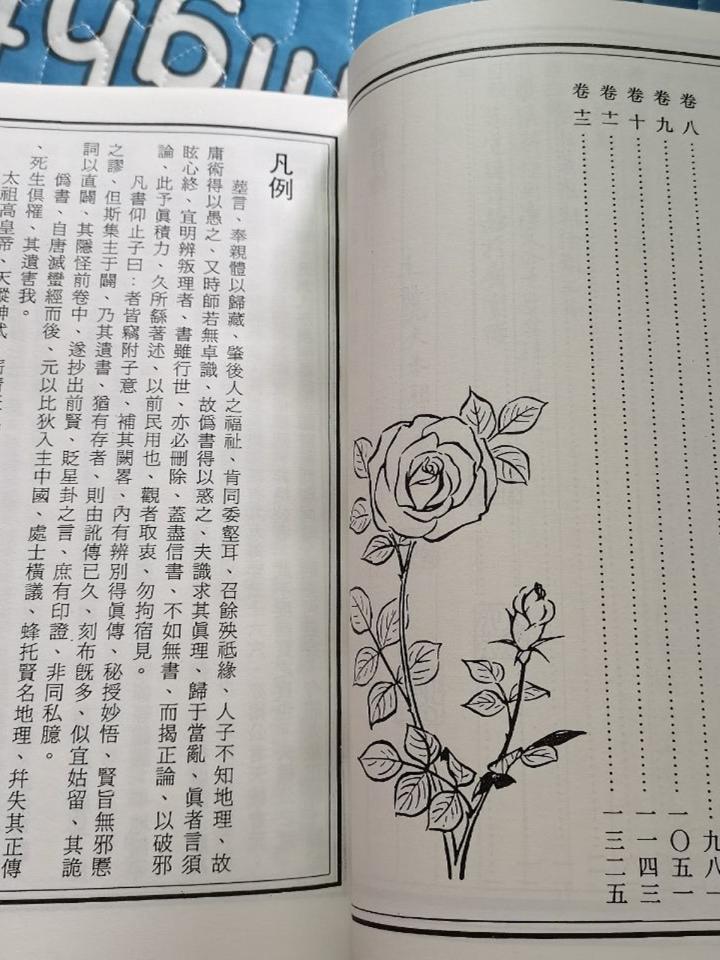 卷八
卷九……九八一
卷十……一〇五一
卷十一……一一四三
卷十二……一三二五
凡例
葬言、奉親體以歸藏、肇後人之福祉、肯同委壑耳、召餘殃祇緣、人子不知地理、故
庸術得以愚之、又時師若無卓識、故僞書得以惑之、夫識求其眞理、歸于當亂、眞者言須
眩心終、宜明辨叛理者、書雖行世、亦必刪除、蓋盡信書、不如無書、而揭正論、以破邪
論、此予眞積力、久所繇著述、以前民用也、觀者取衷、勿拘宿見。
凡書仰止子曰︰者皆竊附子意、補其闕畧、內有辨別得眞傳、秘授妙悟、賢旨無邪慝
之謬、但斯集主于闢、乃其遺書、猶有存者、則由訛傳已久、刻布旣多、似宜姑留、其詭
詞以直闢、其隱怪前卷中、遂抄出前賢、貶星卦之言、庶有印證、非同私臆。
僞書、自唐滅蠻經而後、元以比狄入主中國、處士橫議、蜂托賢名地理、幷失其正傳
、死生俱罹、其遺害我。
太祖高皇帝、天縱神武